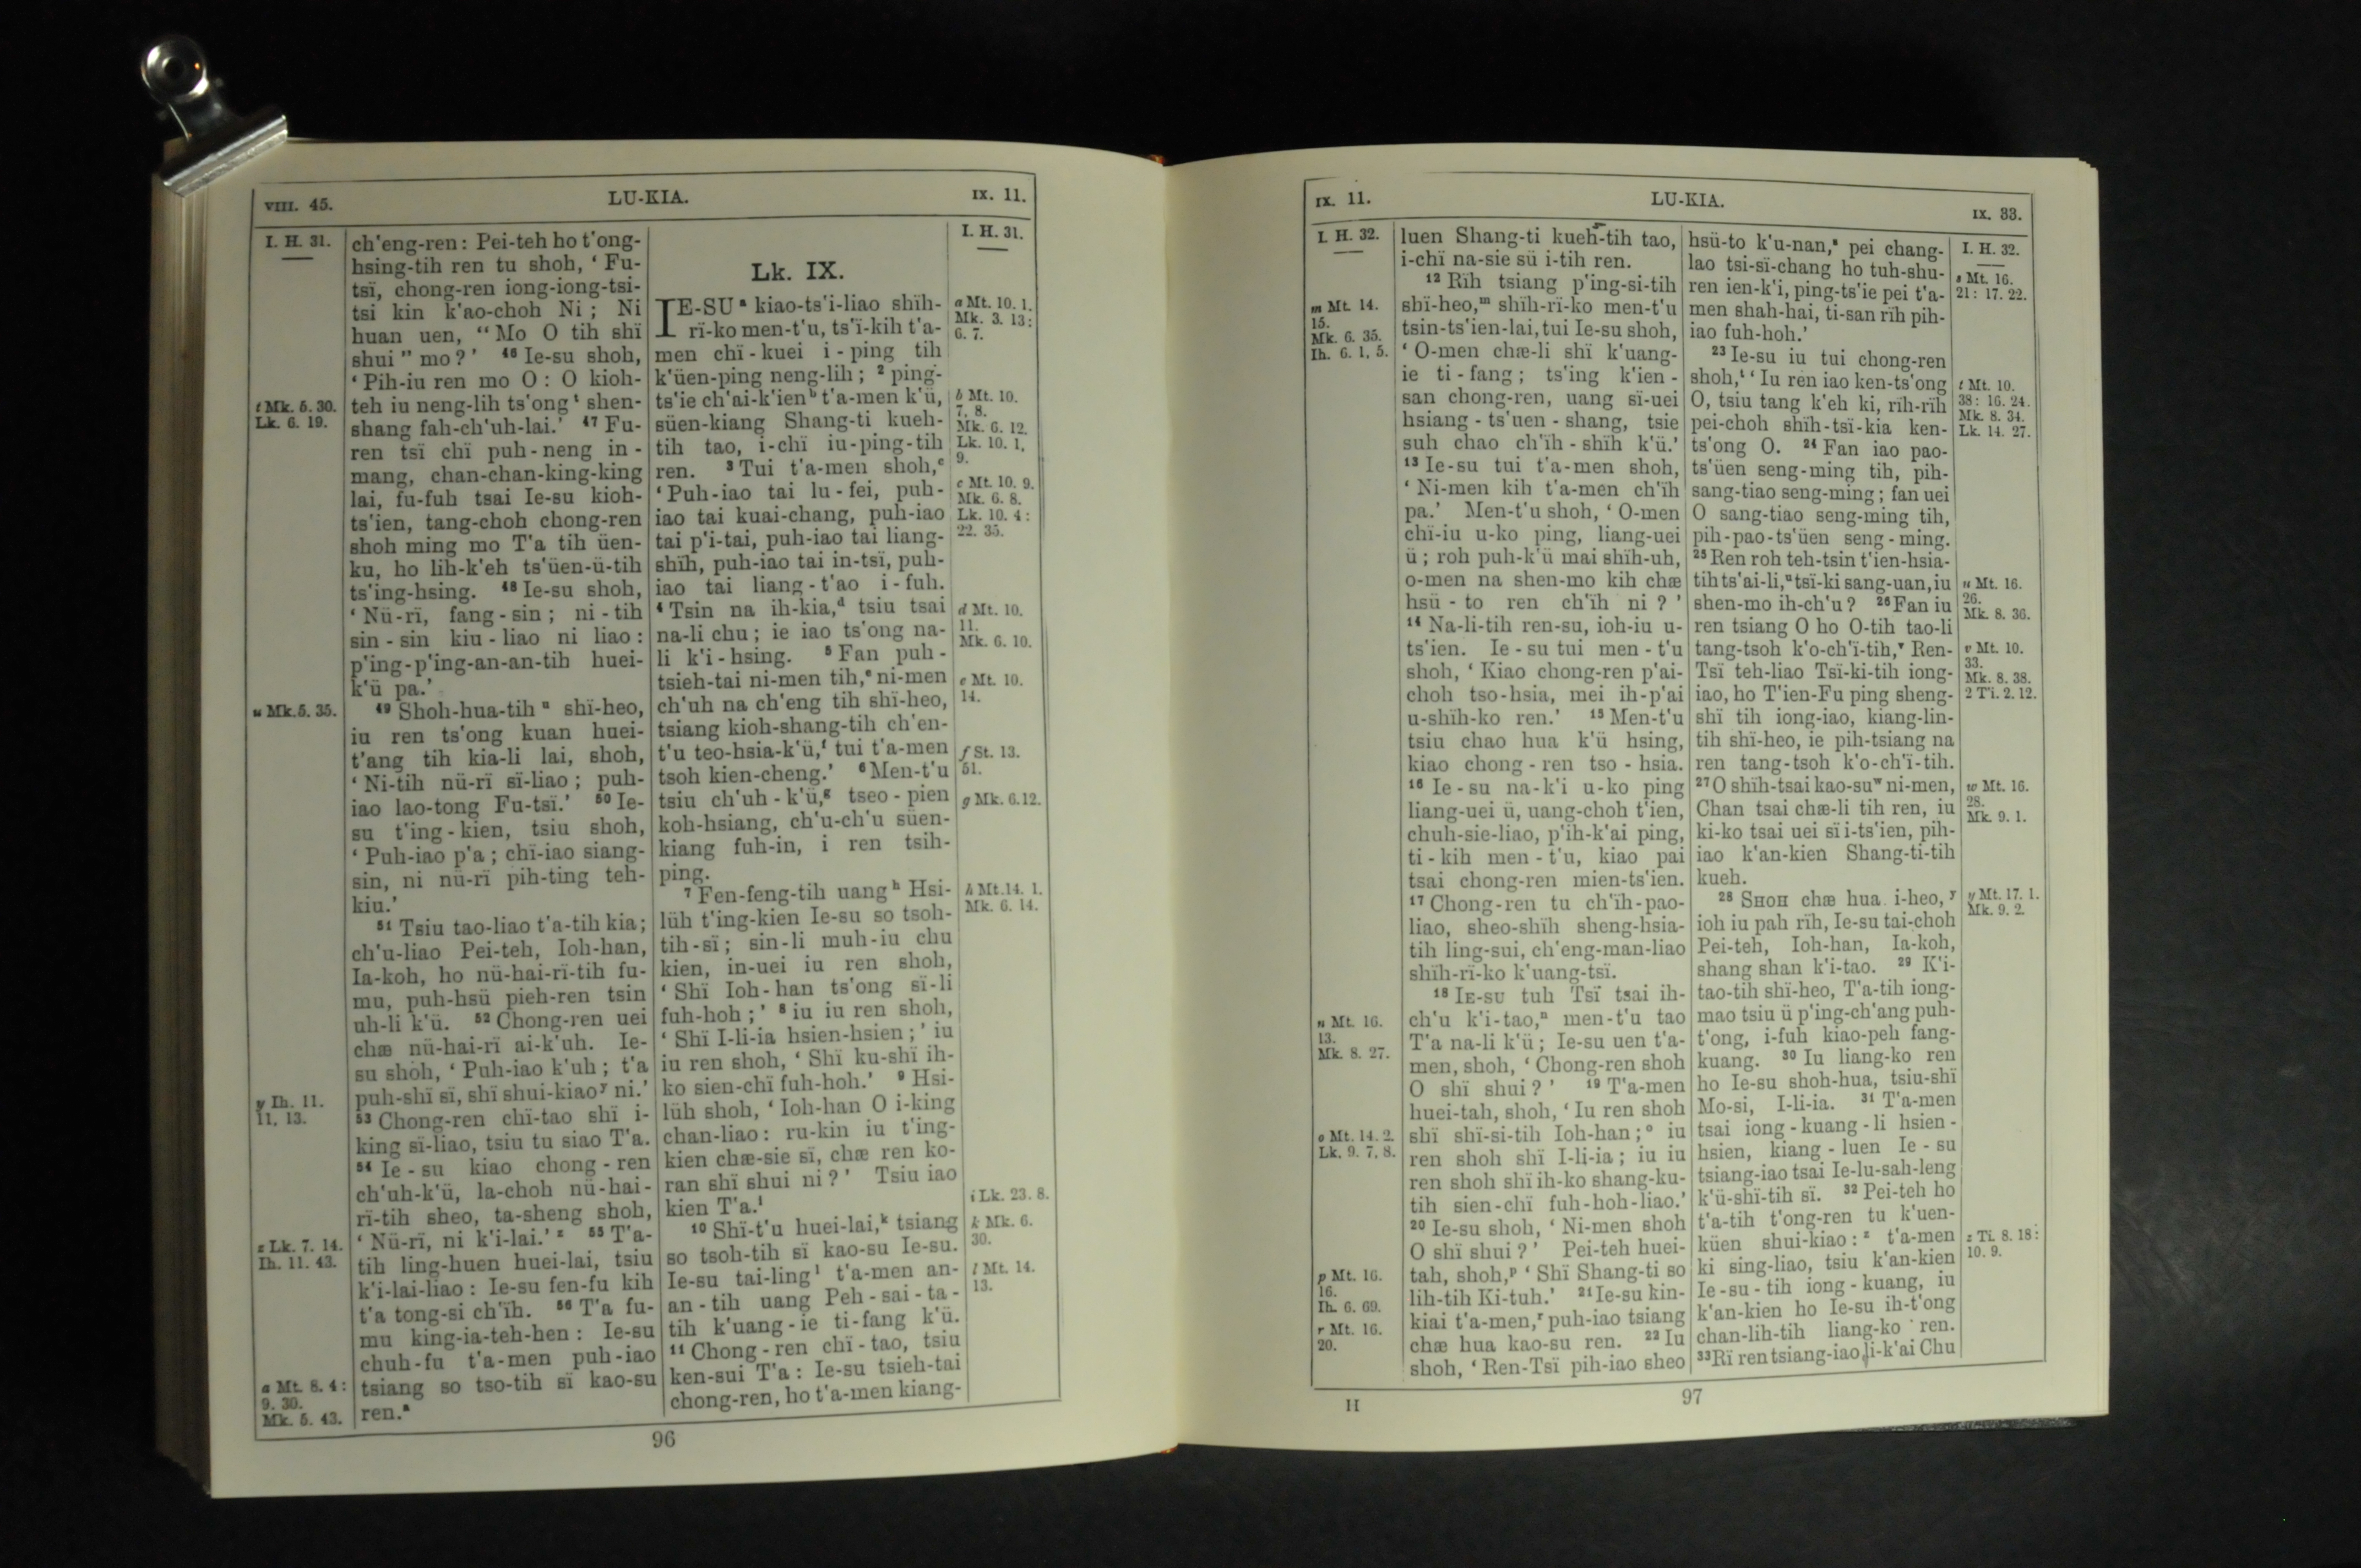 VIII. 45.
LU-KIA.
IX. 11.
I. H. 31.
t Mk. 5. 30.
Lk. 6. 19.
u Mk. 5. 35.
y Ih. 11.
11, 13.
z Lk. 7. 14.
Ih. 11. 43.
a Mt. 8. 4:
9. 30.
Mk. 5. 43.
ch'eng-ren: Pei-teh ho t'ong-
hsing-tih ren tu shoh, ‘ Fu-
tsï, chong-ren iong-iong-tsi-
tsi kin k'ao-choh Ni; Ni
huan uen, “Mo O tih shï
shui” mo?’ ⁴⁶ Ie-su shoh,
‘Pih-iu ren mo O: O kioh-
teh iu neng-lih ts'ong ᵗ shen-
shang fah-ch'uh-lai.’ ⁴⁷ Fu-
ren tsï chï puh-neng in-
mang, chan-chan-king-king
lai, fu-fuh tsai Ie-su kioh-
ts'ien, tang-choh chong-ren
shoh ming mo T'a tih üen-
ku, ho lih-k'eh ts'üen-ü-tih
ts'ing-hsing. ⁴⁸ Ie-su shoh,
‘Nü-rï, fang-sin; ni-tih
sin-sin kiu-liao ni liao:
p'ing-p'ing-an-an-tih huei-
k'ü pa.’
⁴⁹ Shoh-hua-tih ᵘ shï-heo,
iu ren ts'ong kuan huei-
t'ang tih kia-li lai, shoh,
‘Ni-tih nü-rï sï-liao; puh-
iao lao-tong Fu-tsï.’ ⁵⁰ Ie-
su t'ing-kien, tsiu shoh,
‘Puh-iao p'a; chï-iao siang-
sin, ni nü-rï pih-ting teh-
kiu.’
⁵¹ Tsiu tao-liao t'a-tih kia;
ch'u-liao Pei-teh, Ioh-han,
Ia-koh, ho nü-hai-rï-tih fu-
mu, puh-hsü pieh-ren tsin
uh-li k'ü. ⁵² Chong-ren uei
chæ nü-hai-rï ai-k'uh. Ie-
su shoh, ‘Puh-iao k'uh; t'a
puh-shï sï, shï shui-kiao ʸ ni.’
⁵³ Chong-ren chï-tao shï i-
king sï-liao, tsiu tu siao T'a.
⁵⁴ Ie-su kiao chong-ren
ch'uh-k'ü, la-choh nü-hai-
rï-tih sheo, ta-sheng shoh,
‘Nü-rï, ni k'i-lai.’ ᶻ ⁵⁵ T'a-
tih ling-huen huei-lai, tsiu
k'i-lai-liao: Ie-su fen-fu kih
t'a tong-si ch'ïh. ⁵⁶ T'a fu-
mu king-ia-teh-hen: Ie-su
chuh-fu t'a-men puh-iao
tsiang so tso-tih sï kao-su
ren.ᵃ
Lk. IX.
IE-SU ᵃ kiao-ts'i-liao shïh-
rï-ko men-t'u, ts'ï-kih t'a-
men chï-kuei i-ping tih
k'üen-ping neng-lih; ² ping-
ts'ie ch'ai-k'ien ᵇ t'a-men k'ü,
süen-kiang Shang-ti kueh-
tih tao, i-chï iu-ping-tih
ren. ³ Tui t'a-men shoh,ᶜ
‘Puh-iao tai lu-fei, puh-
iao tai kuai-chang, puh-iao
tai p'i-tai, puh-iao tai liang-
shïh, puh-iao tai in-tsï, puh-
iao tai liang-t'ao i-fuh.
⁴ Tsin na ih-kia,ᵈ tsiu tsai
na-li chu; ie iao ts'ong na-
li k'i-hsing. ⁵ Fan puh-
tsieh-tai ni-men tih,ᵉ ni-men
ch'uh na ch'eng tih shï-heo,
tsiang kioh-shang-tih ch'en-
t'u teo-hsia-k'ü,ᶠ tui t'a-men
tsoh kien-cheng.’ ⁶ Men-t'u
tsiu ch'uh-k'ü,ᵍ tseo-pien
koh-hsiang, ch'u-ch'u süen-
kiang fuh-in, i ren tsih-
ping.
⁷ Fen-feng-tih uang ʰ Hsi-
lüh t'ing-kien Ie-su so tsoh-
tih-sï; sin-li muh-iu chu
kien, in-uei iu ren shoh,
‘Shï Ioh-han ts'ong sï-li
fuh-hoh;’ ⁸ iu iu ren shoh,
‘Shï I-li-ia hsien-hsien;’ iu
iu ren shoh, ‘Shï ku-shï ih-
ko sien-chï fuh-hoh.’ ⁹ Hsi-
lüh shoh, ‘Ioh-han O i-king
chan-liao: ru-kin iu t'ing-
kien chæ-sie sï, chæ ren ko-
ran shï shui ni?’ Tsiu iao
kien T'a.ⁱ
¹⁰ Shï-t'u huei-lai,ᵏ tsiang
so tsoh-tih sï kao-su Ie-su.
Ie-su tai-ling ˡ t'a-men an-
an-tih uang Peh-sai-ta-
tih k'uang-ie ti-fang k'ü.
¹¹ Chong-ren chï-tao, tsiu
ken-sui T'a: Ie-su tsieh-tai
chong-ren, ho t'a-men kiang-
I. H. 31.
a Mt. 10. 1.
Mk. 3. 13:
6. 7.
b Mt. 10.
7, 8.
Mk. 6. 12.
Lk. 10. 1,
9.
c Mt. 10. 9.
Mk. 6. 8.
Lk. 10. 4:
22. 35.
d Mt. 10.
11.
Mk. 6. 10.
e Mt. 10.
14.
f St. 13.
51.
g Mk. 6.12.
h Mt. 14. 1.
Mk. 6. 14.
i Lk. 23. 8.
k Mk. 6.
30.
l Mt. 14.
13.
96
IX. 11.
LU-KIA.
IX. 33.
I. H. 32.
m Mt. 14.
15.
Mk. 6. 35.
Ih. 6. 1, 5.
n Mt. 16.
13.
Mk. 8. 27.
o Mt. 14. 2.
Lk. 9. 7, 8.
p Mt. 16.
16.
Ih. 6. 69.
r Mt. 16.
20.
luen Shang-ti kueh-tih tao,
i-chï na-sie sü i-tih ren.
¹² Rïh tsiang p'ing-si-tih
shï-heo,ᵐ shïh-rï-ko men-t'u
tsin-ts'ien-lai, tui Ie-su shoh,
‘O-men chæ-li shï k'uang-
ie ti-fang; ts'ing k'ien-
san chong-ren, uang sï-uei
hsiang-ts'uen-shang, tsie
suh chao ch'ïh-shïh k'ü.’
¹³ Ie-su tui t'a-men shoh,
‘Ni-men kih t'a-men ch'ïh
pa.’ Men-t'u shoh, ‘O-men
chï-iu u-ko ping, liang-uei
ü; roh puh-k'ü mai shïh-uh,
o-men na shen-mo kih chæ
hsü-to ren ch'ïh ni?’
¹⁴ Na-li-tih ren-su, ioh-iu u-
ts'ien. Ie-su tui men-t'u
shoh, ‘Kiao chong-ren p'ai-
choh tso-hsia, mei ih-p'ai
u-shïh-ko ren.’ ¹⁵ Men-t'u
tsiu chao hua k'ü hsing,
kiao chong-ren tso-hsia.
¹⁶ Ie-su na-k'i u-ko ping
liang-uei ü, uang-choh t'ien,
chuh-sie-liao, p'ih-k'ai ping,
ti-kih men-t'u, kiao pai
tsai chong-ren mien-ts'ien.
¹⁷ Chong-ren tu ch'ïh-pao-
liao, sheo-shïh sheng-hsia-
tih ling-sui, ch'eng-man-liao
shïh-rï-ko k'uang-tsï.
¹⁸ IE-SU tuh Tsï tsai ih-
ch'u k'i-tao,ⁿ men-t'u tao
T'a na-li k'ü; Ie-su uen t'a-
men, shoh, ‘Chong-ren shoh
O shï shui?’ ¹⁹ T'a-men
huei-tah, shoh, ‘Iu ren shoh
shï shï-si-tih Ioh-han;ᵒ iu
ren shoh shï I-li-ia; iu iu
ren shoh shï ih-ko shang-ku-
tih sien-chï fuh-hoh-liao.’
²⁰ Ie-su shoh, ‘Ni-men shoh
O shï shui?’ Pei-teh huei-
tah, shoh,ᵖ ‘Shï Shang-ti so
lih-tih Ki-tuh.’ ²¹ Ie-su kin-
kiai t'a-men,ʳ puh-iao tsiang
chæ hua kao-su ren. ²² Iu
shoh, ‘Ren-Tsï pih-iao sheo
hsü-to k'u-nan,ˢ pei chang-
lao tsi-sï-chang ho tuh-shu-
ren ien-k'i, ping-ts'ie pei t'a-
men shah-hai, ti-san rïh pih-
iao fuh-hoh.’
²³ Ie-su iu tui chong-ren
shoh,ᵗ ‘Iu ren iao ken-ts'ong
O, tsiu tang k'eh ki, rïh-rïh
pei-choh shïh-tsï-kia ken-
ts'ong O. ²⁴ Fan iao pao-
ts'üen seng-ming tih, pih-
sang-tiao seng-ming; fan uei
O sang-tiao seng-ming tih,
pih-pao-ts'üen seng-ming.
²⁵ Ren roh teh-tsin t'ien-hsia-
tih ts'ai-li,ᵘ tsï-ki sang-uan, iu
shen-mo ih-ch'u? ²⁶ Fan iu
ren tsiang O ho O-tih tao-li
tang-tsoh k'o-ch'ï-tih,ᵛ Ren-
Tsï teh-liao Tsï-ki-tih iong-
iao, ho T'ien-Fu ping sheng-
shï tih iong-iao, kiang-lin-
tih shï-heo, ie pih-tsiang na
ren tang-tsoh k'o-ch'ï-tih.
²⁷ O shïh-tsai kao-su ʷ ni-men,
Chan tsai chæ-li tih ren, iu
ki-ko tsai uei sï i-ts'ien, pih-
iao k'an-kien Shang-ti-tih
kueh.
²⁸ SHOH chæ hua i-heo,ʸ
ioh iu pah rïh, Ie-su tai-choh
Pei-teh, Ioh-han, Ia-koh,
shang shan k'i-tao. ²⁹ K'i-
tao-tih shï-heo, T'a-tih iong-
mao tsiu ü p'ing-ch'ang puh-
t'ong, i-fuh kiao-peh fang-
kuang. ³⁰ Iu liang-ko ren
ho Ie-su shoh-hua, tsiu-shï
Mo-si, I-li-ia. ³¹ T'a-men
tsai iong-kuang-li hsien-
hsien, kiang-luen Ie-su
tsiang-iao tsai Ie-lu-sah-leng
k'ü-shï-tih sï. ³² Pei-teh ho
t'a-tih t'ong-ren tu k'uen-
küen shui-kiao:ᶻ t'a-men
ki sing-liao, tsiu k'an-kien
Ie-su-tih iong-kuang, iu
k'an-kien ho Ie-su ih-t'ong
chan-lih-tih liang-ko ren.
³³ Rï ren tsiang-iao li-k'ai Chu
I. H. 32.
s Mt. 16.
21: 17. 22.
t Mt. 10.
38: 16. 24.
Mk. 8. 34.
Lk. 14. 27.
u Mt. 16.
26.
Mk. 8. 36.
v Mt. 10.
33.
Mk. 8. 38.
2 Ti. 2. 12.
w Mt. 16.
28.
Mk. 9. 1.
y Mt. 17. 1.
Mk. 9. 2.
z Ti. 8. 18:
10. 9.
H
97